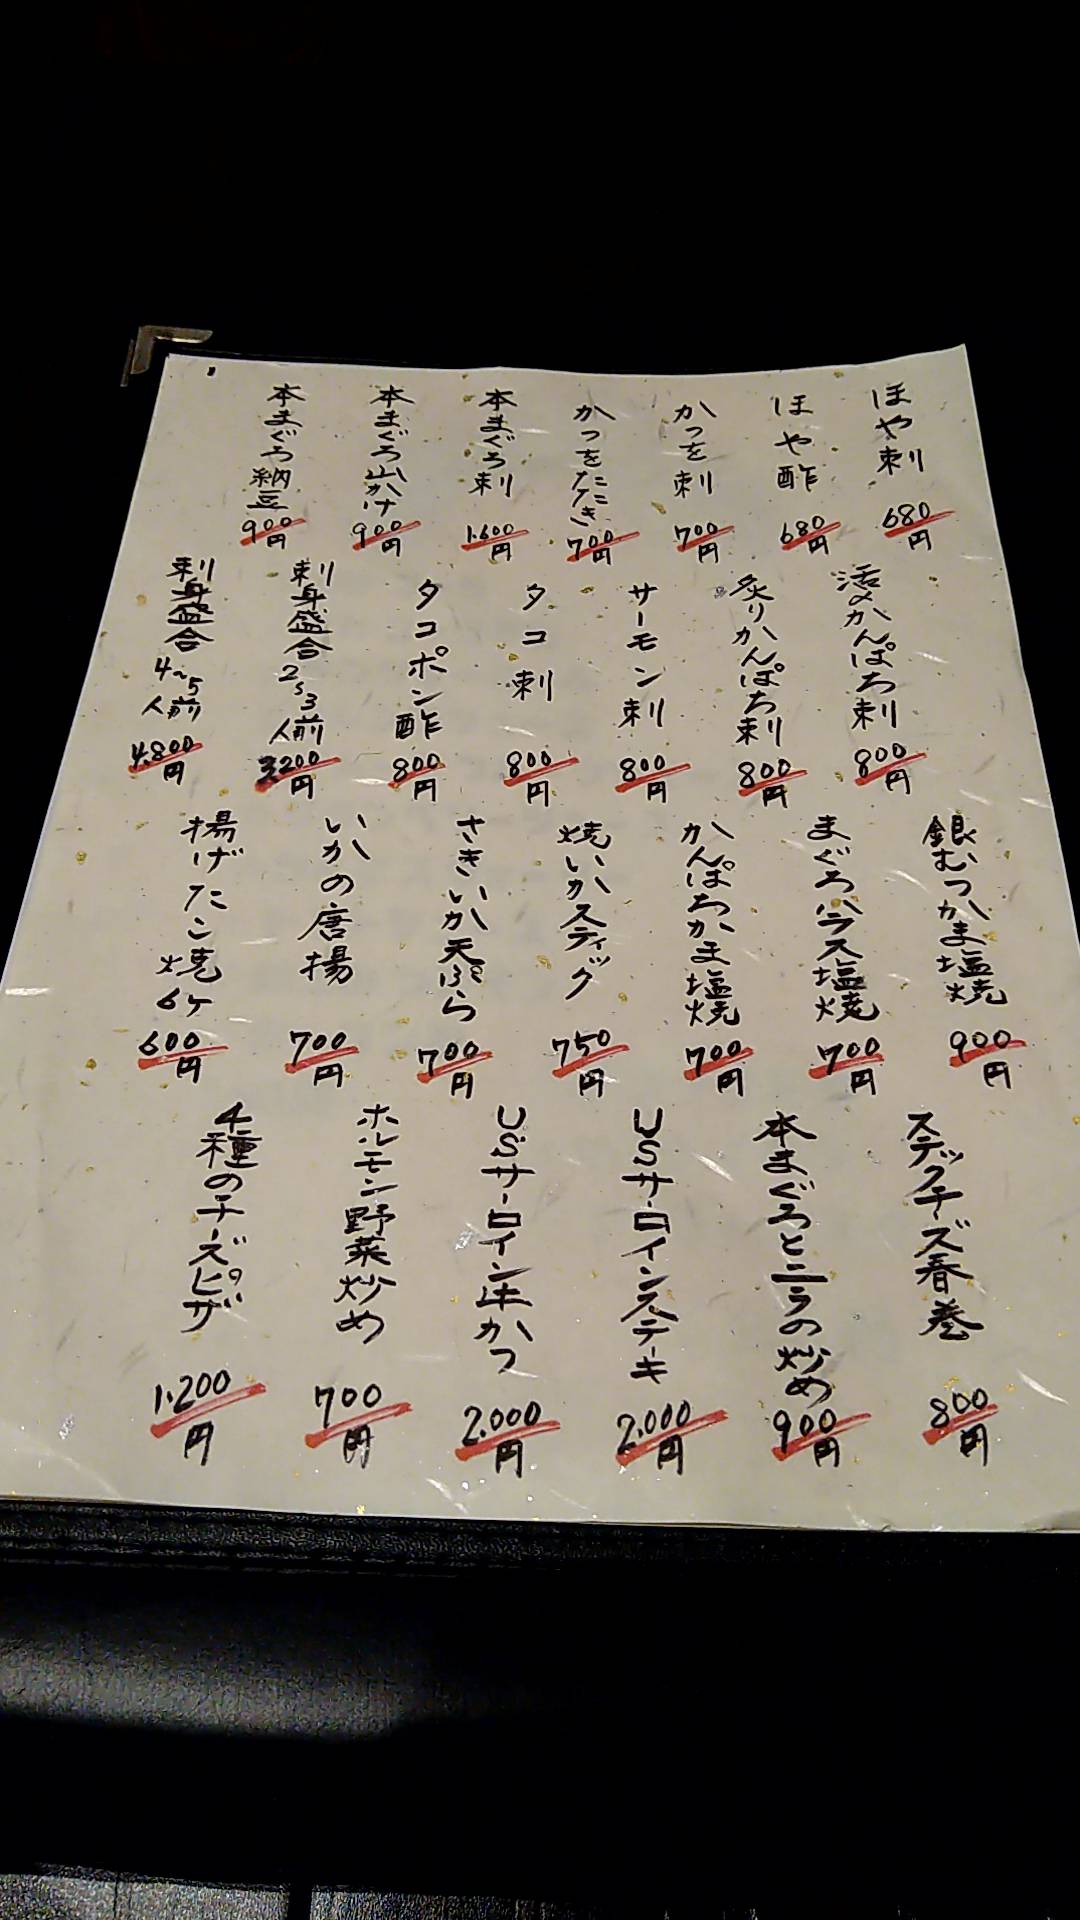 ほや刺
680円
ほや酢
680円
かつを刺
700円
かつをたたき
700円
本まぐろ刺
1.600円
本まぐろ山かけ
900円
本まぐろ納豆
900円
活〆かんぱち刺
800円
炙りかんぱち刺
800円
サーモン刺
800円
タコ刺
800円
タコポン酢
800円
刺身盛合2〜3人前
3.200円
刺身盛合4〜5人前
4.800円
銀むつかま塩焼
900円
まぐろハラス塩焼
700円
かんぱちかま塩焼
700円
焼いかスティック
750円
さきいか天ぷら
700円
いかの唐揚
700円
揚げたこ焼6ヶ
600円
ステックチーズ春巻
800円
本まぐろとニラの炒め
900円
USサーロインステーキ
2.000円
USサーロイン牛かつ
2.000円
ホルモン野菜炒め
700円
4種のチーズピザ
1.200円